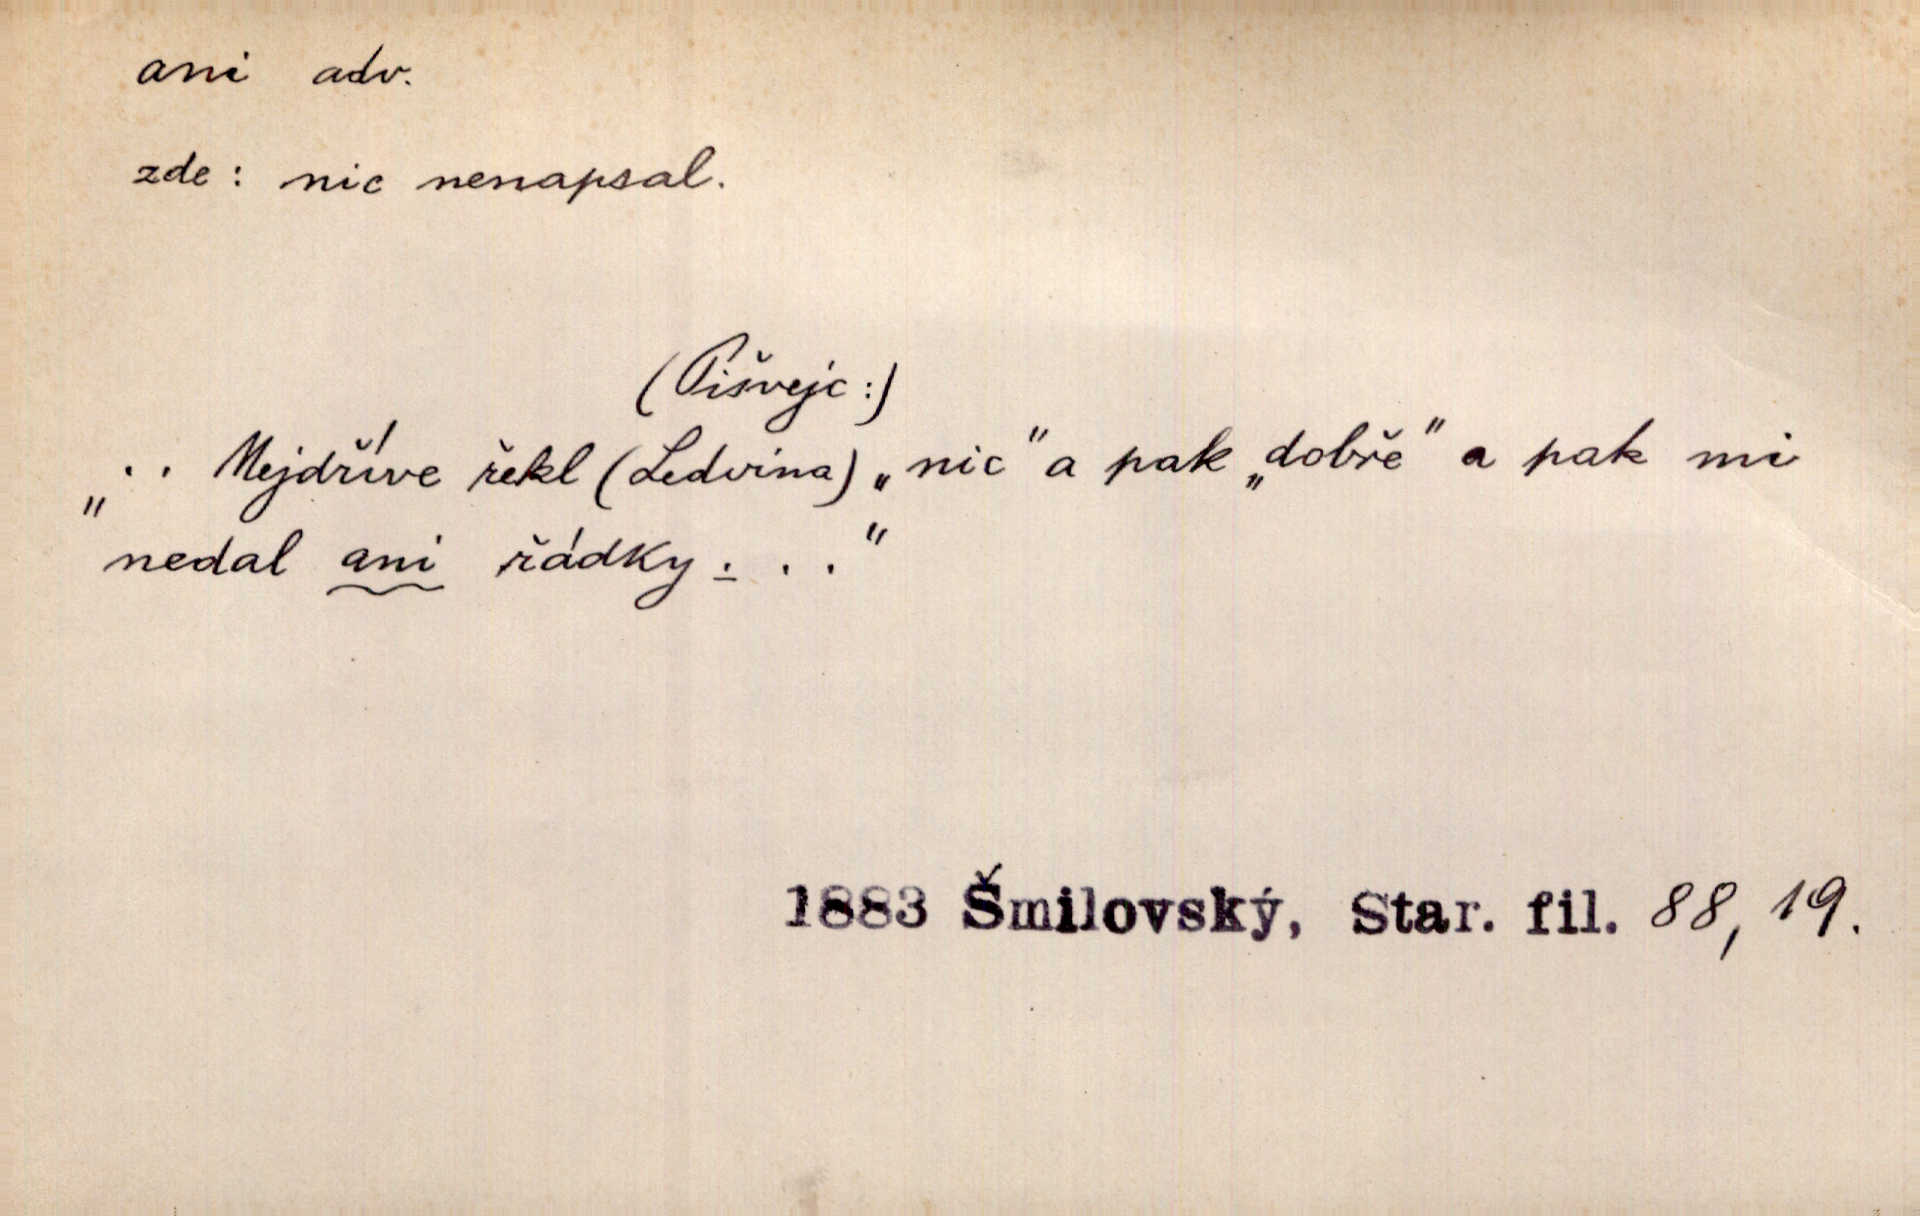 ani adv.
zde: nic nenapsal.
(Pišvejc:)
„ . . Nejdříve řekl (Ledvina) „nic" a pak „dobře" a pak mi
nedal ani řádky . . ."
1883 Šmilovský, Star. fil. 88, 19.